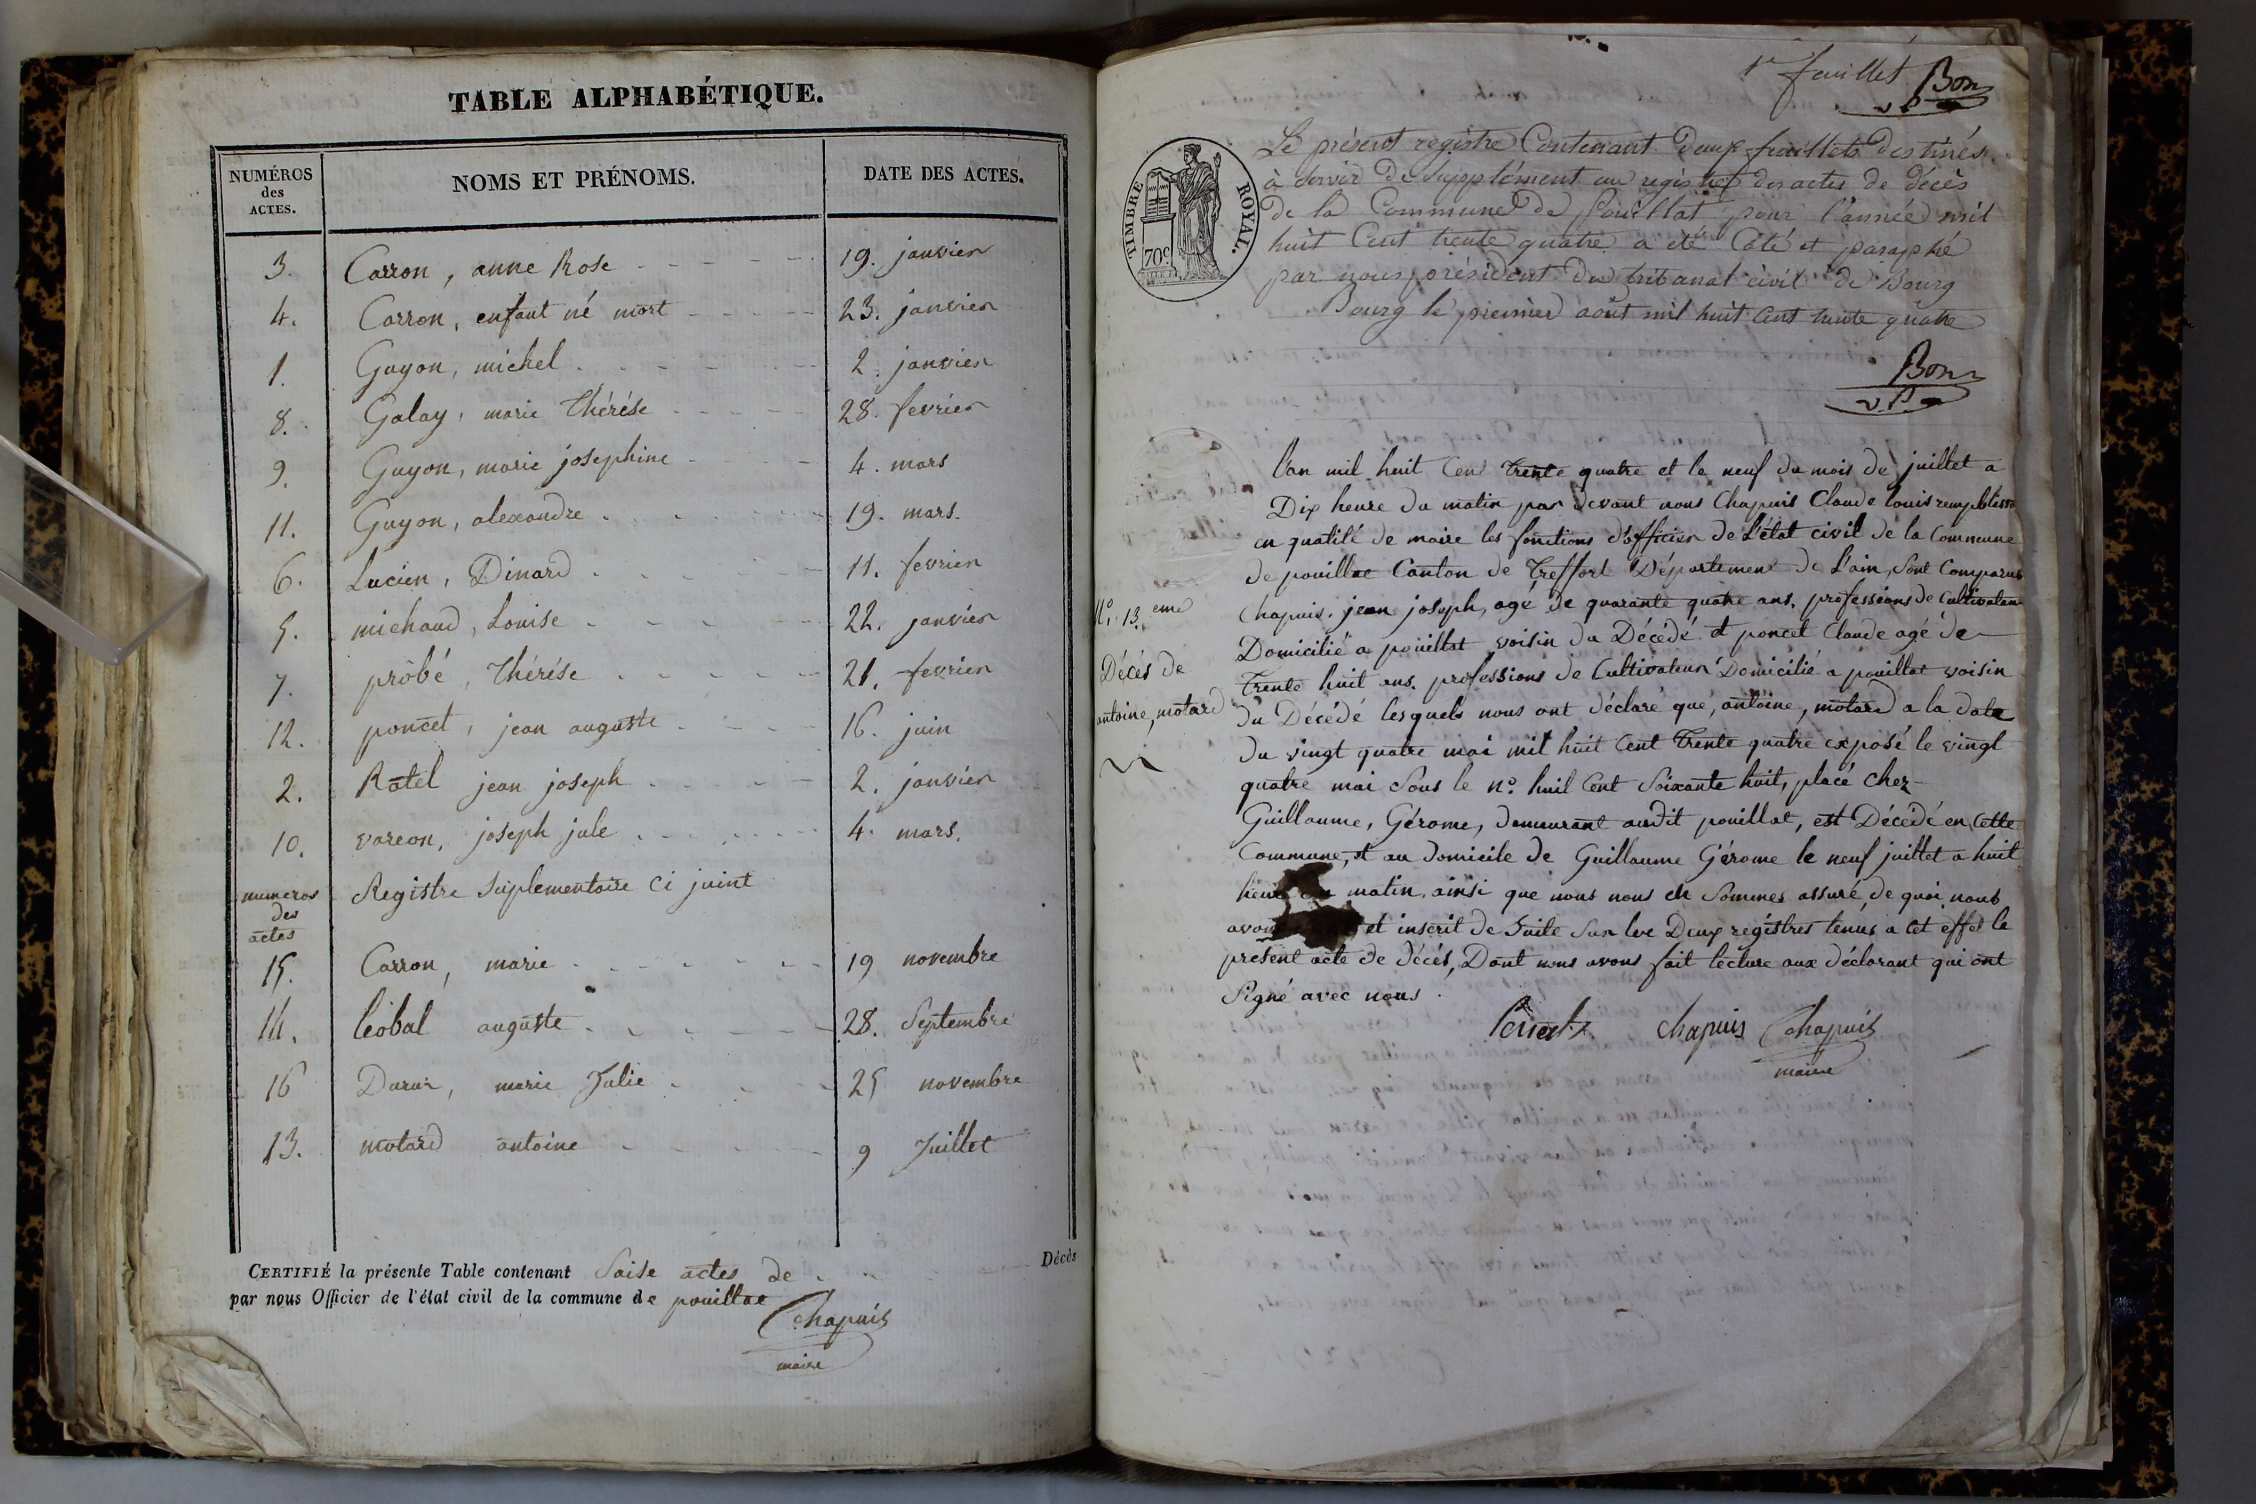 TABLE ALPHABÉTIQUE.
NUMÉROS des ACTES. NOMS ET PRÉNOMS. DATE DES ACTES.
3. Carron, anne Rose 19. janvier
4. Carron, enfant né mort 23. janvier
1. Guyon, michel 2. janvier
8. Galay, marie Thérése 28. fevrier
9. Guyon, marie josephine 4. mars
11. Guyon, alexandre 19. mars.
6. Lucien, Dinard 11. fevrier
5. michaud, Louise 22. janvier
7. prôbé, Thérése 21. fevrier
12. poncet, jean auguste 16. juin
2. Ratel jean joseph 2. janvier
10. vareon, joseph jule 4. mars.
numeros des actes Registre suplementaire ci juint
15. Carron, marie 19 novembre
14. Léobal auguste 28. Septembre
16 marie Julie 25 novembre
13. motard antoine 9 Juillet
CERTIFIÉ la présente Table contenant Saise actes de Décès
par nous Officier de l'état civil de la commune de pouillac
Chapuis
maire
1er feuillet Bon
v.P.
TIMBRE ROYAL.
70c.
Le présent registre Contenant deux feuillets destinés
à servir de Supplément au registre des actes de décès
de la Commune de Pouillat pour l'année mil
huit Cent trente quatre a été Coté et paraphé
par nous président du tribunal civil de Bourg
Bourg le premier août mil huit cent trente quatre
Bon
v.P.
l'an mil huit Cent Trente quatre et le neuf du mois de juillet a
Dix heure du matin par devant nous Chapuis Claude Louis remplissa
en qualité de maire les fonctions d'officier de L'état civil de la Commune
de pouillac Canton de Treffort Département de L'ain, Sont Comparus
N°. 13.eme
Chapuis, jean joseph, agé de quarante quatre ans, professions de Cultivateur
Domicilié a pouillat voisin du Décédé et poncet Claude agé de
Décès de
Trente huit ans, professions de Cultivateur Domicilié a pouillat voisin
antoine, motard
du Décédé lesquels nous ont déclaré que, antoine, motard a la date
du vingt quatre mai mil huit Cent Trente quatre exposé le vingt
quatre mai Sous le n°. huit Cent Soixante huit, placé chez
Guillaume, Gérome, demeurant audit pouillat, est Décédé en Cette
Commune, et au domicile de Guillaume Gérome le neuf juillet a huit
heure du matin, ainsi que nous nous en Sommes assuré, de quoi nous
avons et inscrit de Suite Sur lve Deux régistres tenus a cet effet le
present acte de décés, Dont nous avons fait lecture aux déclarant qui ont
Signé avec nous.
chapuis Chapuis
maire